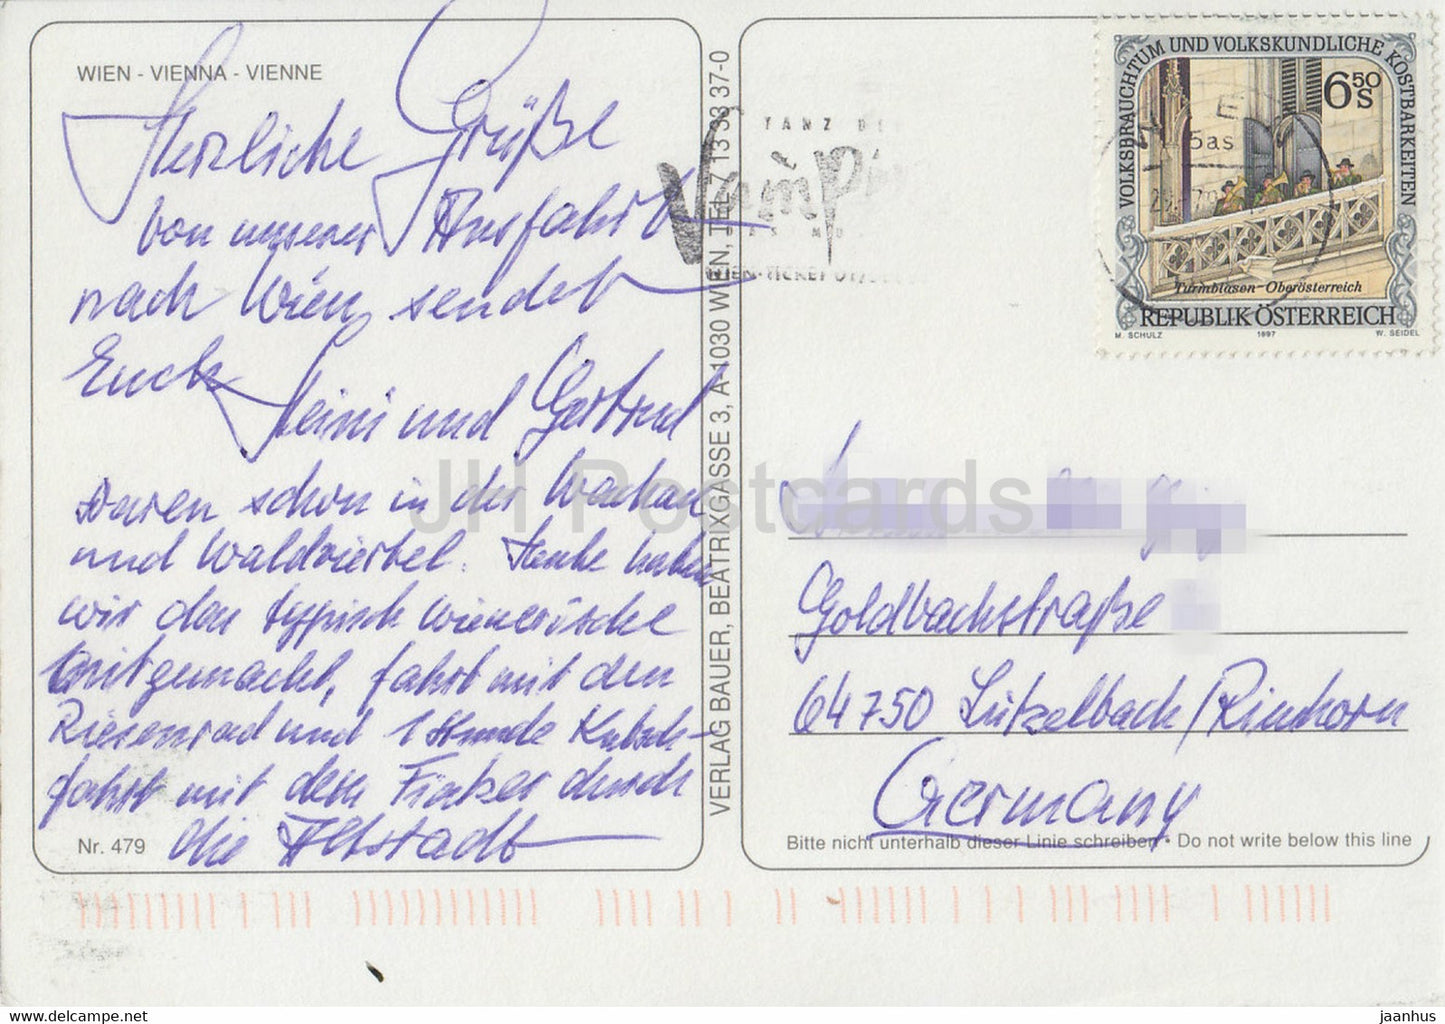 WIEN - VIENNA - VIENNE
Herzliche Grüße
von unserer Ausfahrt
nach Wien sendet
Euch
Heini und Gertrud
waren schon in der Wachau
und Waldviertel. Heute haben
wir den typisch wienerische
mitgemacht, fahrt mit dem
Riesenrad und 1 Stunde Kutsch-
fahrt mit dem Fiaker durch
die Altstadt
Nr. 479
VERLAG BAUER, BEATRIXGASSE 3, A-1030 WIEN, TEL. 713 33 37-0
TANZ DER
Vampire
DAS MU
WIEN-TICKET 01/
VOLKSBRAUCHTUM UND VOLKSKUNDLICHE KOSTBARKEITEN
6 50 S
5as
Turmblasen - Oberösterreich
REPUBLIK ÖSTERREICH
M. SCHULZ 1997 W. SEIDEL
Goldbachstraße
64750 Lützelbach/Rimhorn
Germany
Bitte nicht unterhalb dieser Linie schreiben • Do not write below this line
JH Postcards
www.jhpostcards.com
jaanhus